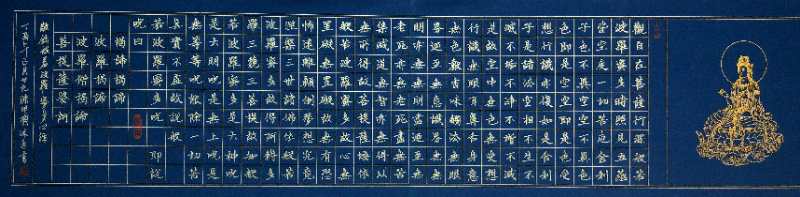 觀自在菩薩行深般若
波羅蜜多時照見五蘊
皆空度一切苦厄舍利
子色不異空空不異色
色即是空空即是色受
想行識亦復如是舍利
子是諸法空相不生不
滅不垢不淨不增不減
是故空中無色無受想
行識無眼耳鼻舌身意
無色聲香味觸法無眼
界乃至無意識界無無
明亦無無明盡乃至無
老死亦無老死盡無苦
集滅道無智亦無得以
無所得故菩提薩埵依
般若波羅蜜多故心無
罣礙無罣礙故無有恐
怖遠離顛倒夢想究竟
涅槃三世諸佛依般若
波羅蜜多故得阿耨多
羅三藐三菩提故知般
若波羅蜜多是大神咒
是大明咒是無上咒是
無等等咒能除一切苦
真實不虛故說般
若波羅蜜多咒即說
咒曰
揭諦揭諦
波羅揭諦
波羅僧揭諦
菩提薩婆訶
敬錄般若波羅蜜多心經